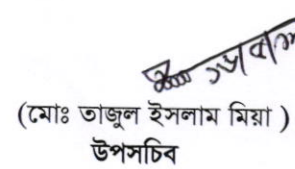 (মোঃ তাজুল ইসলাম মিয়া )
উপসচিব